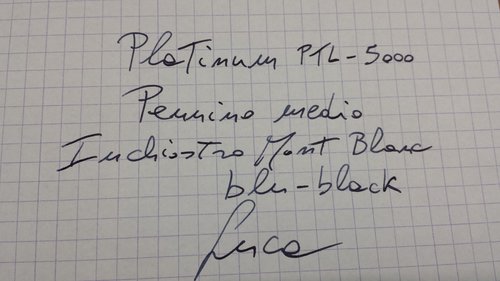 Platinum PTL-5000
Pennino medio
Inchiostro Mont Blanc
blu-black
Luca